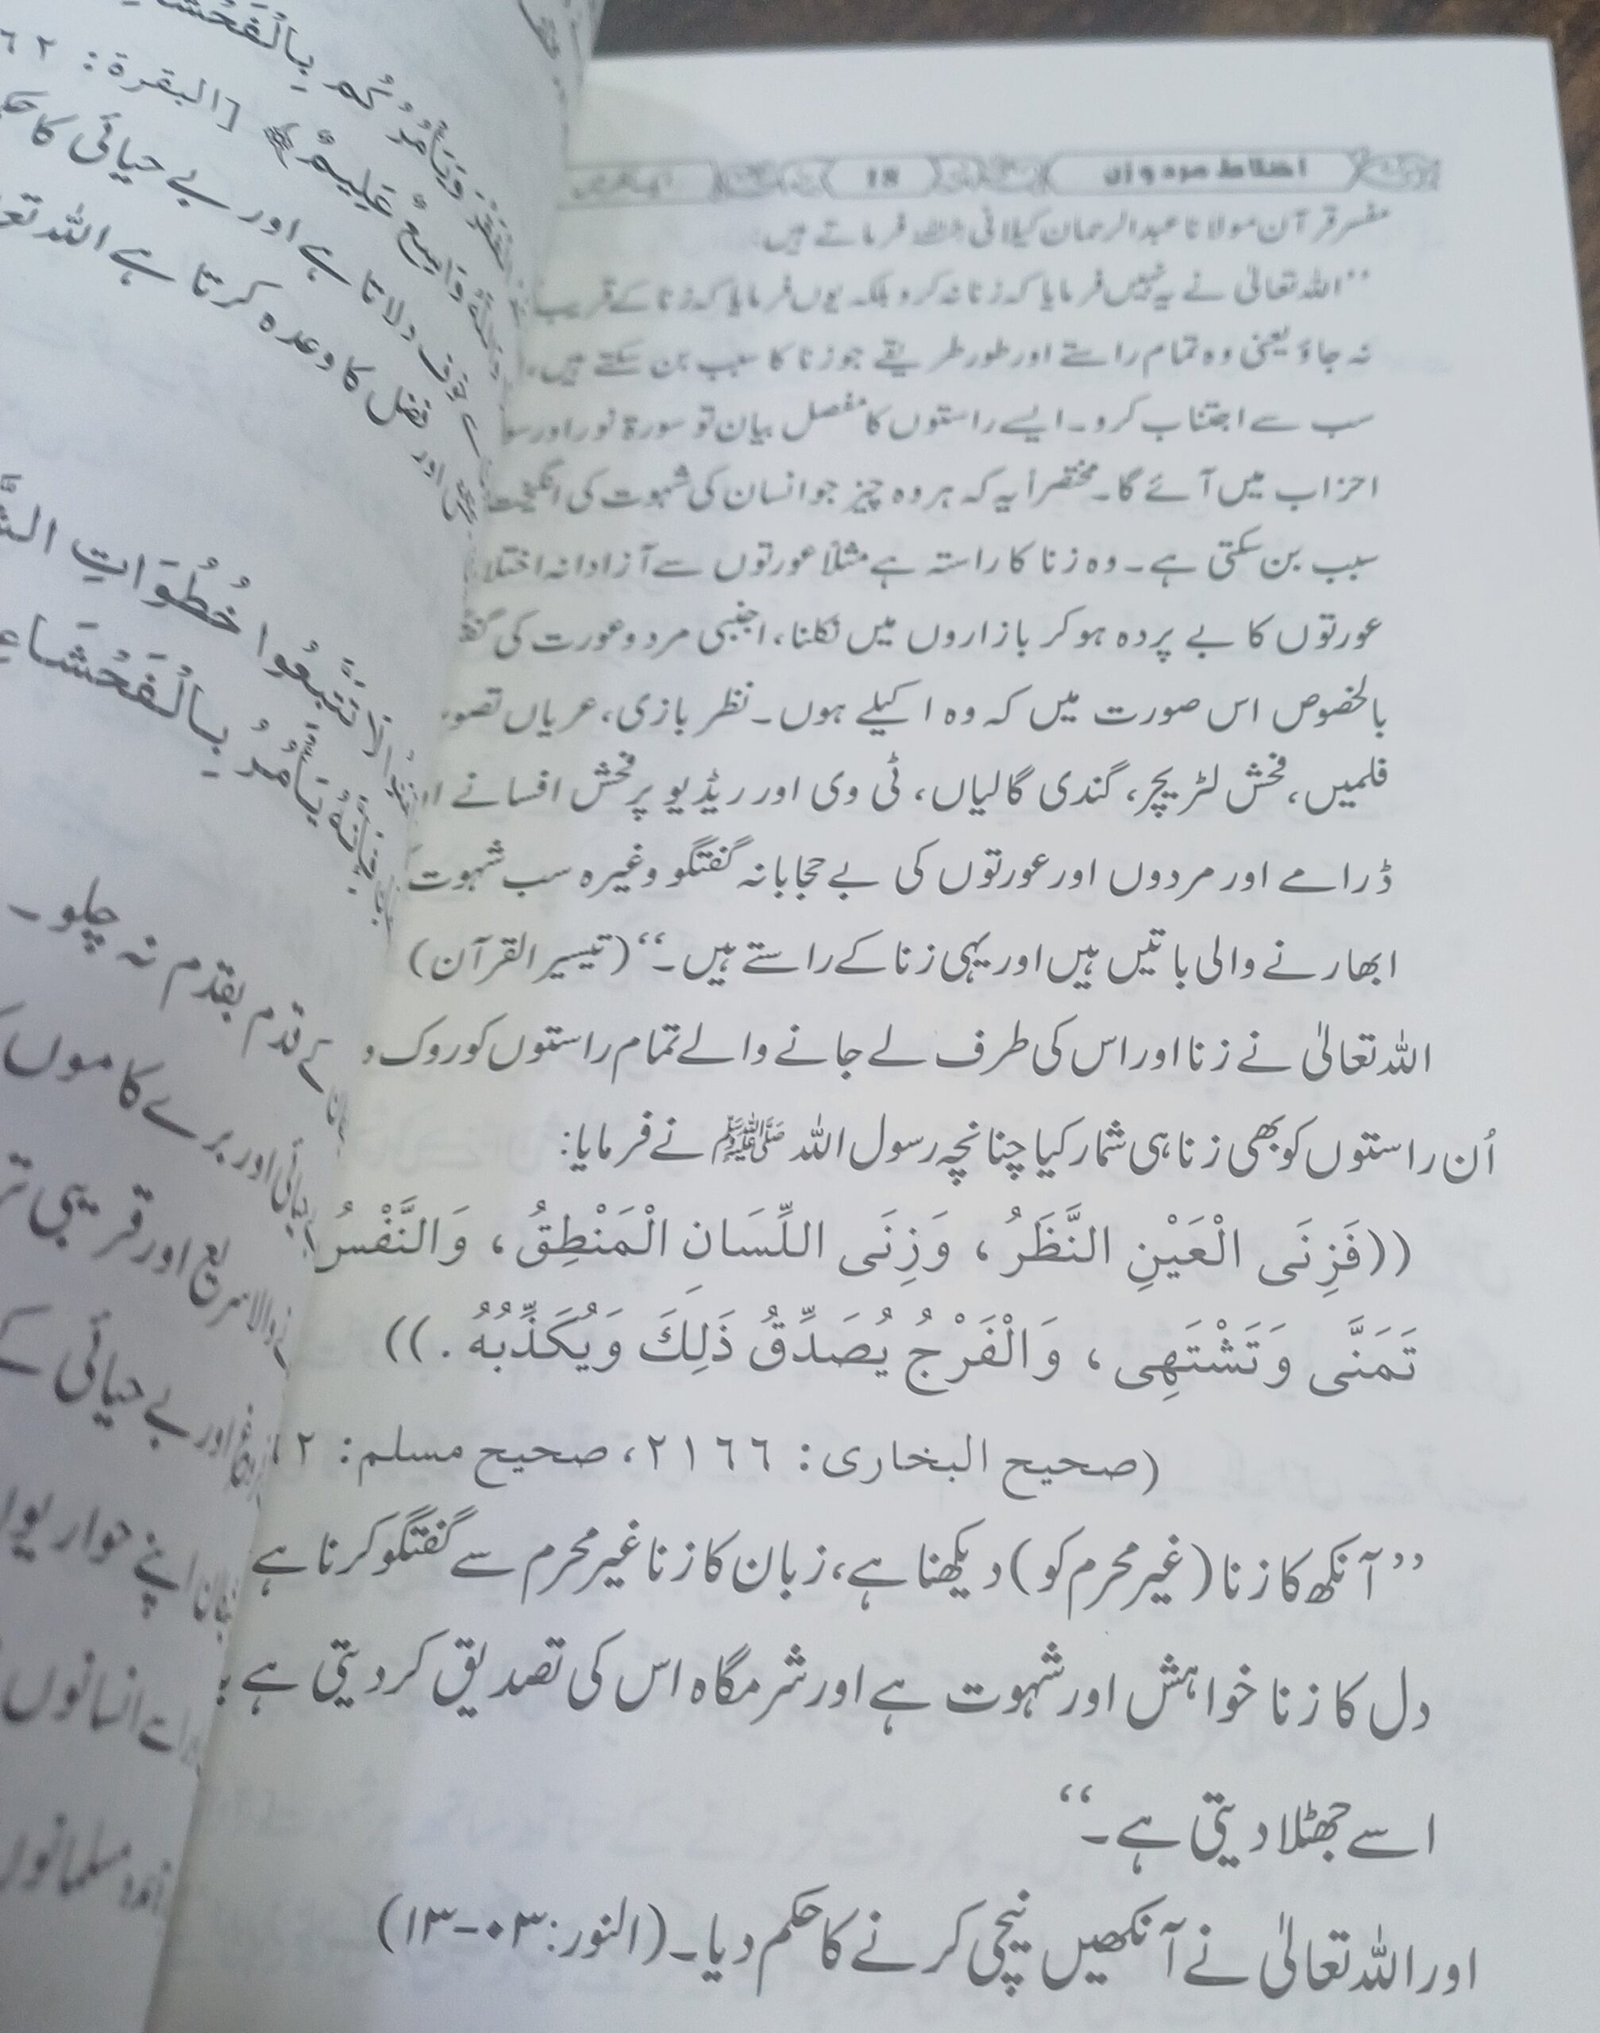 اختلاط مرد و زن
18
مفسر قرآن مولانا عبدالرحمان کیلانی رحمہ اللہ فرماتے ہیں:
’’اللہ تعالیٰ نے یہ نہیں فرمایا کہ زنا نہ کرو بلکہ یوں فرمایا کہ زنا کے قریب
نہ جاؤ یعنی وہ تمام راستے اور طور طریقے جو زنا کا سبب بن سکتے ہیں،
سب سے اجتناب کرو۔ ایسے راستوں کا مفصل بیان تو سورۃ نور اور
احزاب میں آئے گا۔ مختصراً یہ کہ ہر وہ چیز جو انسان کی شہوت کی
سبب بن سکتی ہے۔ وہ زنا کا راستہ ہے مثلاً عورتوں سے آزادانہ
عورتوں کا بے پردہ ہو کر بازاروں میں نکلنا، اجنبی مرد و عورت کی
بالخصوص اس صورت میں کہ وہ اکیلے ہوں۔ نظر بازی، عریاں
فلمیں، فحش لٹریچر، گندی گالیاں، ٹی وی اور ریڈیو پر فحش افسانے
ڈرامے اور مردوں اور عورتوں کی بے حجابانہ گفتگو وغیرہ سب شہوت
ابھارنے والی باتیں ہیں اور یہی زنا کے راستے ہیں۔‘‘ (تیسیر القرآن)
اللہ تعالیٰ نے زنا اور اس کی طرف لے جانے والے تمام راستوں کو روک
اُن راستوں کو بھی زنا ہی شمار کیا چنانچہ رسول اللہ ﷺ نے فرمایا:
((فَزِنَى الْعَيْنِ النَّظَرُ ، وَزِنَى اللِّسَانِ الْمَنْطِقُ ، وَالنَّفْسُ
تَمَنَّى وَتَشْتَهِى ، وَالْفَرْجُ يُصَدِّقُ ذَلِكَ وَيُكَذِّبُهُ .))
(صحیح البخاری: ٢١٦٦، صحیح مسلم:
’’آنکھ کا زنا (غیر محرم کو) دیکھنا ہے، زبان کا زنا غیر محرم سے گفتگو کرنا ہے
دل کا زنا خواہش اور شہوت ہے اور شرمگاہ اس کی تصدیق کر دیتی ہے
اسے جھٹلا دیتی ہے۔‘‘
اور اللہ تعالیٰ نے آنکھیں نیچی کرنے کا حکم دیا۔ (النور: ۰۳-۱۳)
وَيَأْمُرُكُم بِالْفَحْشَاءِ
وَاسِعٌ عَلِيمٌ﴾ [البقرة:
خوف دلاتا ہے اور بے حیائی کا
اور فضل کا وعدہ کرتا ہے اللہ
لَا تَتَّبِعُوا خُطُوَاتِ
فَإِنَّهُ يَأْمُرُ بِالْفَحْشَاءِ
کے قدم بقدم نہ چلو۔
اور برے کاموں
والا سریع اور قریبی
اور بے حیائی کے
اپنے حواریوں
انسانوں